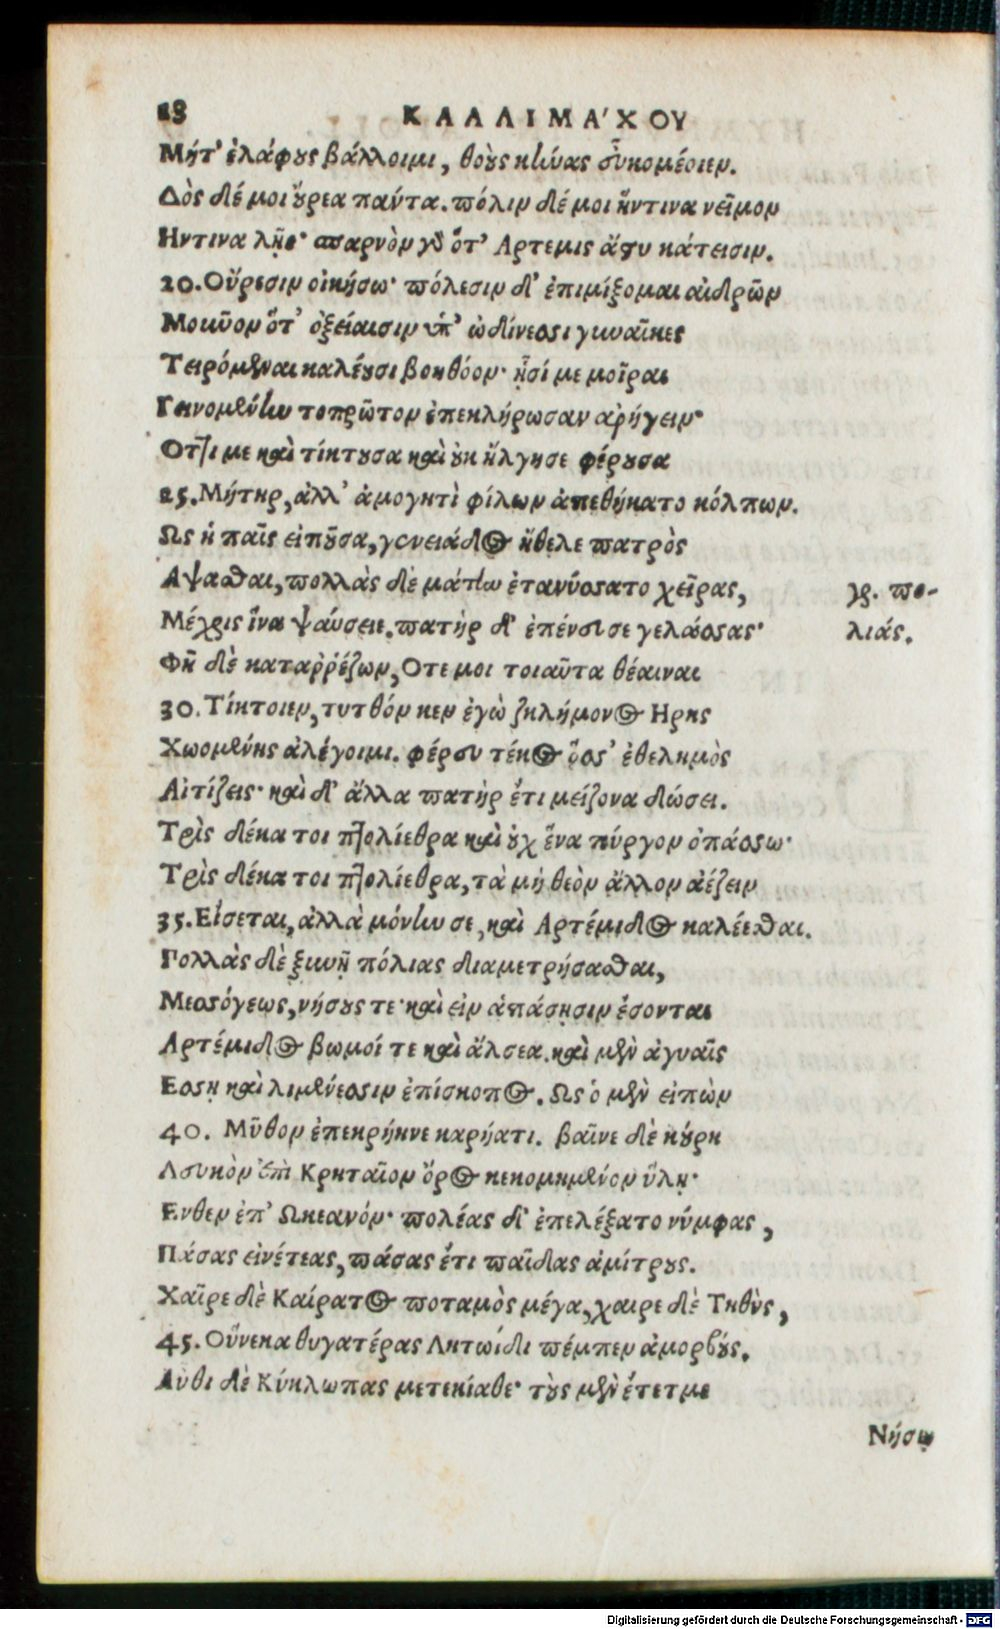 18 ΚΑΛΛΙΜΑ'ΧΟΥ
Μήτ' ἐλάφους βάλλοιμι, θοὺς κύνας εὖ κομέοιεν.
Δὸς δέ μοι ὔρεα πάντα. πόλιν δέ μοι ἥντινα νεῖμον
Ηντινα λῇς· σπαρνὸν γὰρ ὅτ' Αρτεμις ἄστυ κάτεισιν.
20. Οὔρεσιν οἰκήσω· πόλεσιν δ' ἐπιμίξομαι ἀνδρῶν
Μοιῦον ὅτ' ὀξείαισιν ὑπ' ὠδίνεσσι γυναῖκες
Τειρόμεναι καλέουσι βοηθόον· ᾗσί με μοῖραι
Γεινομένην τοπρῶτον ἐπεκλήρωσαν ἀρήγειν·
Οτ]ι με καὶ τίκτουσα καὶ οὐκ ἤλγησε φέρουσα
25. Μήτηρ, ἀλλ' ἀμογητὶ φίλων ἀπεθήκατο κόλπων.
Ως ἡ παῖς εἰποῦσα, γενειάδος ἤθελε πατρὸς
Αψασθαι, πολλὰς δὲ μάτην ἐτανύσσατο χεῖρας, γρ. πο-
Μέχρις ἵνα ψαύσειε. πατὴρ δ' ἐπένευσε γελάσσας· λιάς.
Φῆ δὲ καταῤῥέζων, Οτε μοι τοιαῦτα θέαιναι
30. Τίκτοιεν, τυτθόν κεν ἐγὼ ζηλήμονος Ηρης
Χωομένης ἀλέγοιμι. φέρευ τέκος ὅσσ' ἐθελημὸς
Αἰτίζεις· καὶ δ' ἄλλα πατὴρ ἔτι μείζονα δώσει.
Τρὶς δέκα τοι πτολίεθρα καὶ οὐχ ἕνα πύργον ὀπάσσω·
Τρὶς δέκα τοι πτολίεθρα, τὰ μὴ θεὸν ἄλλον ἀέξειν
35. Εἴσεται, ἀλλὰ μόνην σε, καὶ Αρτέμιδος καλέεσθαι.
Γολλὰς δὲ ξυνῇ πόλιας διαμετρήσασθαι,
Μεσσόγεως, νήσους τε· καὶ ἐν ἁπάσῃσιν ἔσονται
Αρτέμιδος βωμοί τε καὶ ἄλσεα. καὶ μὲν ἀγυαῖς
Εσσῃ καὶ λιμένεσσιν ἐπίσκοπος. Ως ὁ μὲν εἰπὼν
40. Μῦθον ἐπεκρήηνε καρήατι. βαῖνε δὲ κούρη
Λευκὸν ἐπὶ Κρηταῖον ὄρος κεκομημένον ὕλῃ·
Ενθεν ἐπ' Ωκεανόν· πολέας δ' ἐπελέξατο νύμφας,
Πάσας εἰνέτεας, πάσας ἔτι παῖδας ἀμίτρους.
Χαῖρε δὲ Καίρατος ποταμὸς μέγα, χαιρε δὲ Τηθὺς,
45. Οὕνεκα θυγατέρας Λητωίδι πέμπεν ἀμορβούς.
Αὐθι δὲ Κύκλωπας μετεκίαθε· τοὺς μὲν ἔτετμε
Νήσω